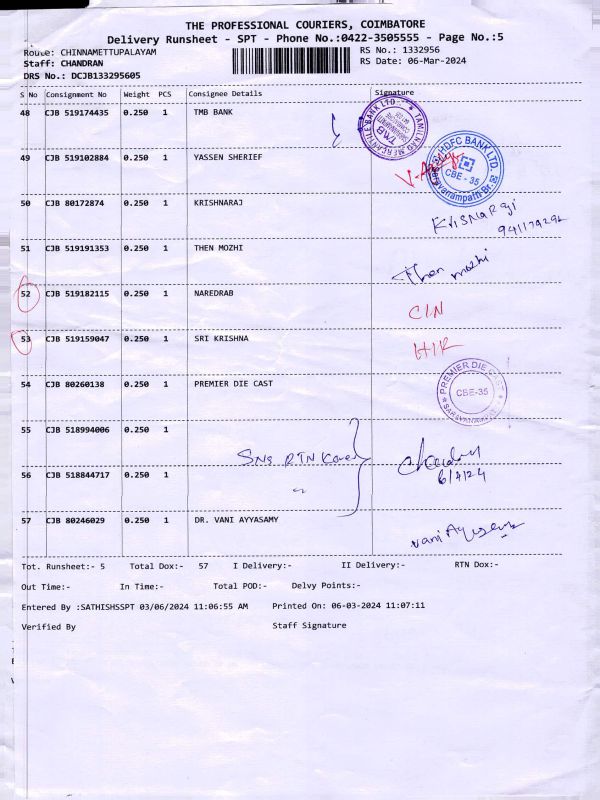 THE PROFESSIONAL COURIERS, COIMBATORE
Delivery Runsheet - SPT - Phone No.:0422-3505555 - Page No.:5
Route: CHINNAMETTUPALAYAM RS No.: 1332956
Staff: CHANDRAN RS Date: 06-Mar-2024
DRS No.: DCJB133295605
S No Consignment No Weight PCS Consignee Details Signature
48 CJB 519174435 0.250 1 TMB BANK
TAMILNAD MERCANTILE BANK LTD
TMB
49 CJB 519102884 0.250 1 YASSEN SHERIEF
HDFC BANK LTD.
CBE - 35
Saravanampatti Br.
50 CJB 80172874 0.250 1 KRISHNARAJ
51 CJB 519191353 0.250 1 THEN MOZHI Then mozhi
52 CJB 519182115 0.250 1 NAREDRAB C/N
53 CJB 519159047 0.250 1 SRI KRISHNA
54 CJB 80260138 0.250 1 PREMIER DIE CAST
PREMIER DIE CAST
CBE-35
55 CJB 518994006 0.250 1
SNS RTN
56 CJB 518844717 0.250 1
57 CJB 80246029 0.250 1 DR. VANI AYYASAMY
Tot. Runsheet:- 5 Total Dox:- 57 I Delivery:- II Delivery:- RTN Dox:-
Out Time:- In Time:- Total POD:- Delvy Points:-
Entered By :SATHISHSSPT 03/06/2024 11:06:55 AM Printed On: 06-03-2024 11:07:11
Verified By Staff Signature